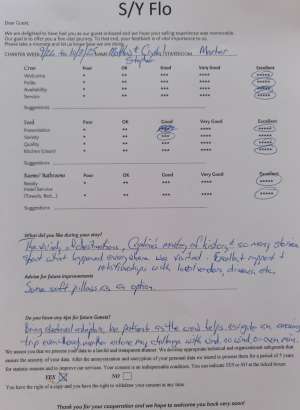 S/Y Flo
Dear Guest,
We are delighted to have had you as our guest onboard and we hope your sailing experience was memorable.
Our goal is to offer you a five-star journey. To that end, your feedback is of vital importance to us.
Please take a moment and let us know how we are doing.
CHARTER WEEK
Crew Poor OK Good Very Good Excellent
Welcome * ** *** **** *****
Polite * ** *** **** *****
Availability * ** *** **** *****
Service * ** *** **** *****
Suggestions
Food Poor OK Good Very Good Excellent
Presentation * ** *** **** *****
Variety * ** *** **** *****
Quality * ** *** **** *****
Kitchen (clean) * ** *** **** *****
Suggestions
Room/ Bathroom Poor OK Good Very Good Excellent
Ready * ** *** **** *****
Hotel Service
(Towels, Bed...) * ** *** **** *****
Suggestions
What did you like during your stay?
The variety of destinations, Captain's of history & so many stories
about what happened everywhere we visited. Excellent support &
relationships with local vendors, drivers, etc.
Advise for future improvements
Some soft pillows as an option.
Do you have any tips for future Guests?
Bring electrical adapters, be patient as the wind helps
trip even though weather with wind, no wind
We assure you that we process your data in a lawful and transparent manner. We develop appropriate technical and organizational safeguards that
ensure the security of your data. After the anonymization and encryption of your personal data we intend to process them for a period of 5 years
for statistic reasons and to improve our services. Your consent is an indispensable condition. You can indicate YES or NO at the ticked boxes:
YES NO
You have the right of a copy and you have the right to withdraw your consent at any time.
Thank you for your cooperation and we hope to welcome you back very soon!